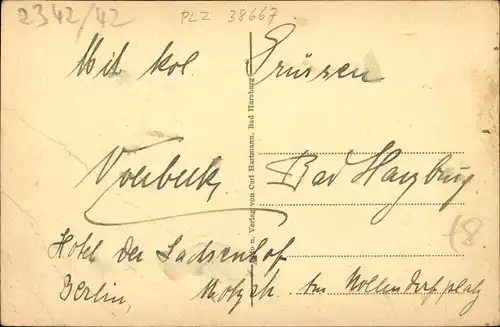 2342/42
PLZ 38667
Mit kol. Grüssen
Voebeck, Bad Harzburg,
Hotel der Sachsenhof
Berlin, Motzstr. am Nollendorfplatz
u. Verlag von Carl Hartmann, Bad Harzburg
18